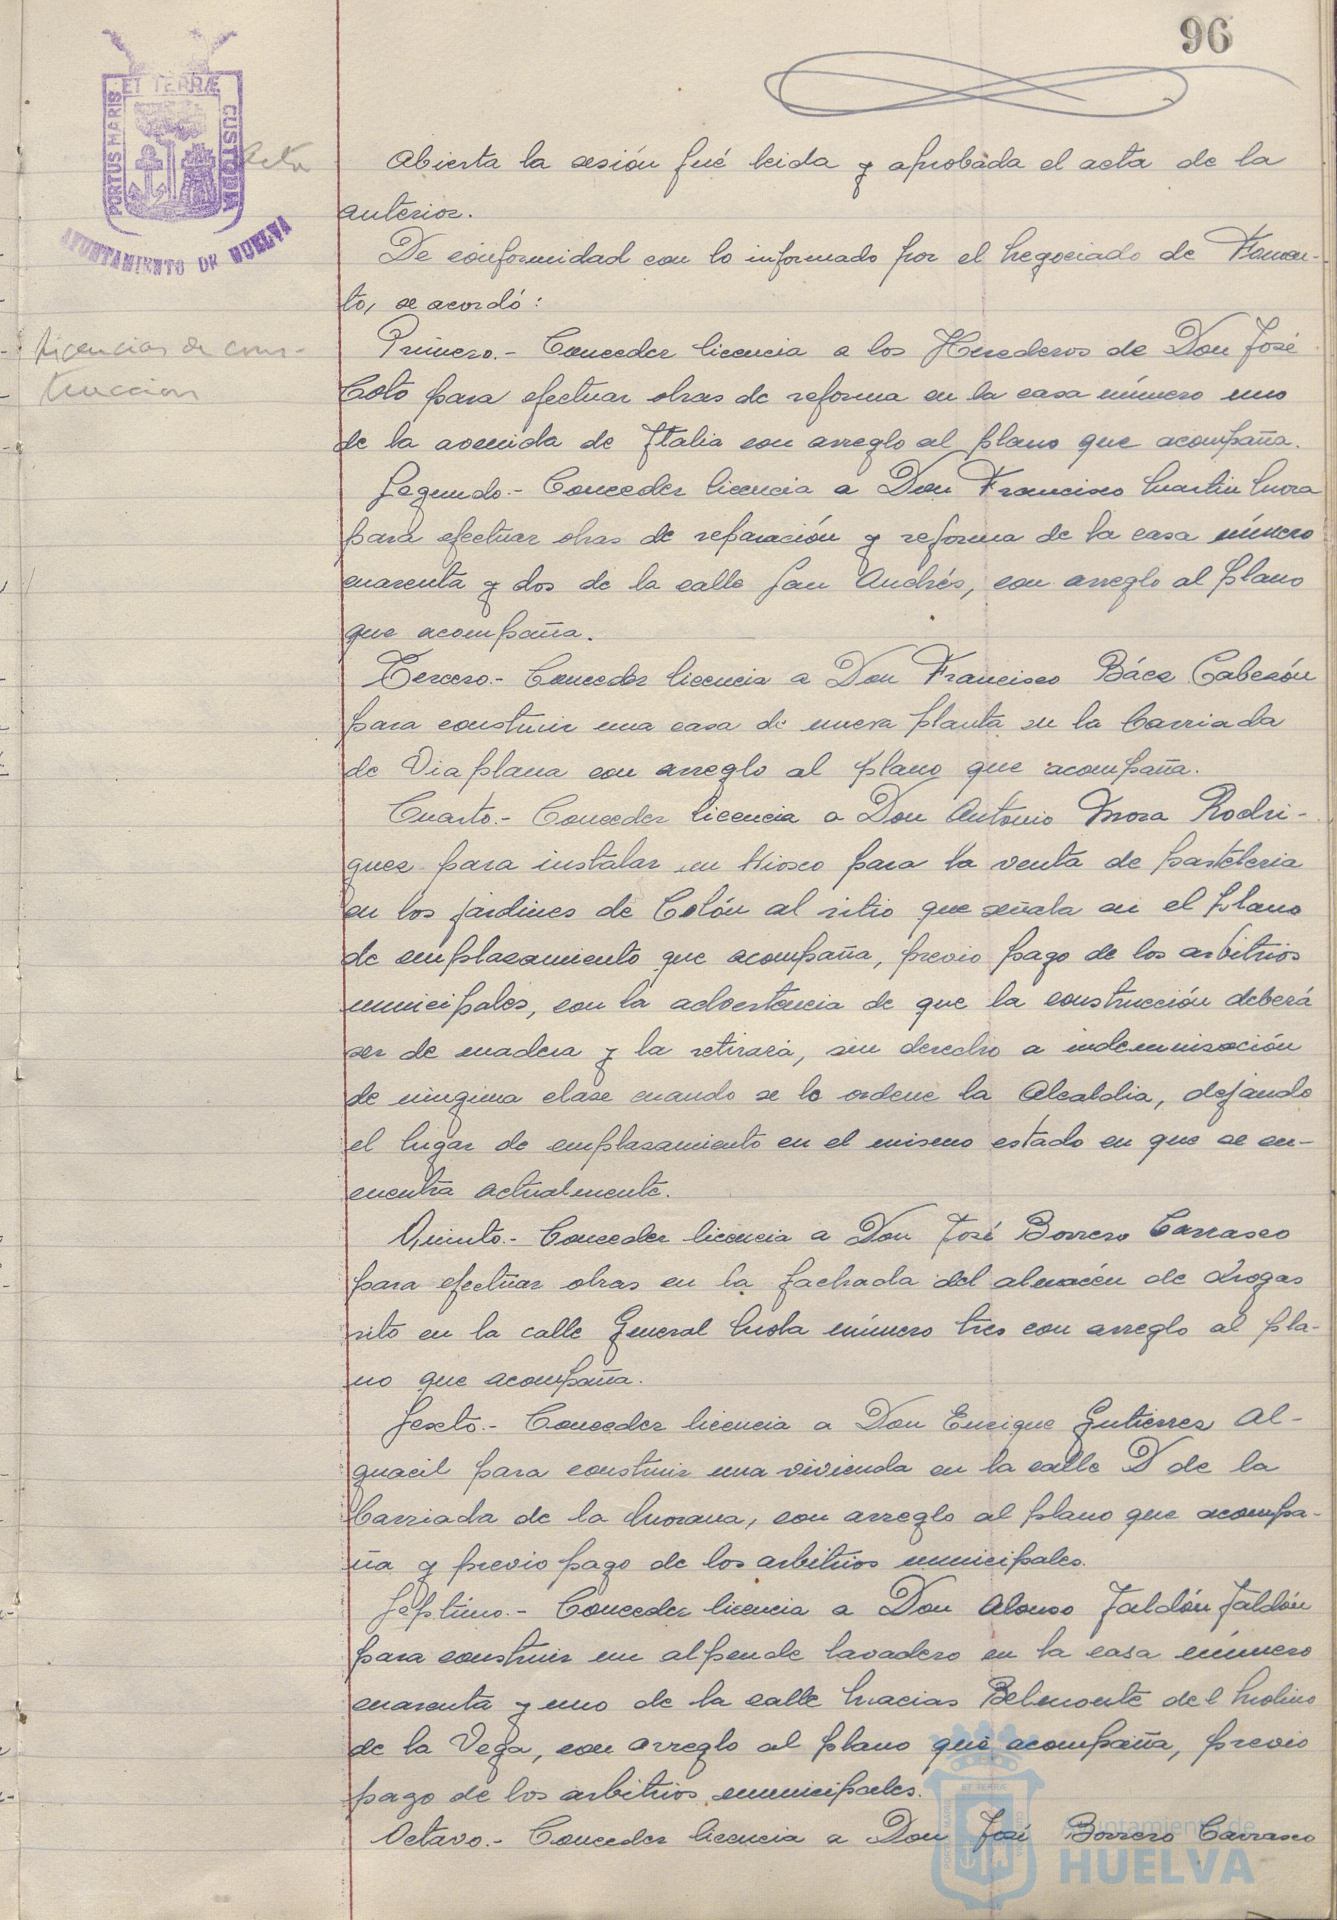 96
ET TERRÆ
PORTUS MARIS
CUSTODIA
AYUNTAMIENTO DE HUELVA
Acta
Abierta la sesión fué leida y aprobada el acta de la
anterior.
De conformidad con lo informado por el Negociado de Fomen-
to, se acordó:
Licencias de cons-
truccion
Primero.- Conceder licencia a los Herederos de Don José
Coto para efectuar obras de reforma en la casa número uno
de la avenida de Italia con arreglo al plano que acompaña.
Segundo.- Conceder licencia a Don Francisco Martin Mora
para efectuar obras de reparación y reforma de la casa número
cuarenta y dos de la calle San Andrés, con arreglo al plano
que acompaña.
Tercero.- Conceder licencia a Don Francisco Báez Cabezón
para construir una casa de nueva planta en la barriada
de Viaplana con arreglo al plano que acompaña.
Cuarto.- Conceder licencia a Don Antonio Mora Rodri-
guez para instalar un kiosco para la venta de pasteleria
en los jardines de Colón al sitio que señala en el plano
de emplazamiento que acompaña, previo pago de los arbitrios
municipales, con la advertencia de que la construcción deberá
ser de madera y la retirará, sin derecho a indemnización
de ninguna clase cuando se lo ordene la Alcaldia, dejando
el lugar de emplazamiento en el mismo estado en que se en-
cuentra actualmente.
Quinto.- Conceder licencia a Don José Borrero Carrasco
para efectuar obras en la fachada del almacén de drogas
sito en la calle General Mola número tres con arreglo al pla-
no que acompaña.
Sexto.- Conceder licencia a Don Enrique Gutierrez Al-
guacil para construir una vivienda en la calle D de la
barriada de la Morana, con arreglo al plano que acompa-
ña y previo pago de los arbitrios municipales.
Séptimo.- Conceder licencia a Don Alonso Jaldón Jaldón
para construir un alpende lavadero en la casa número
cuarenta y uno de la calle Macias Belmonte del Molino
de la Vega, con arreglo al plano que acompaña, previo
pago de los arbitrios municipales.
Octavo.- Conceder licencia a Don José Borrero Carrasco
Ayuntamiento de
HUELVA